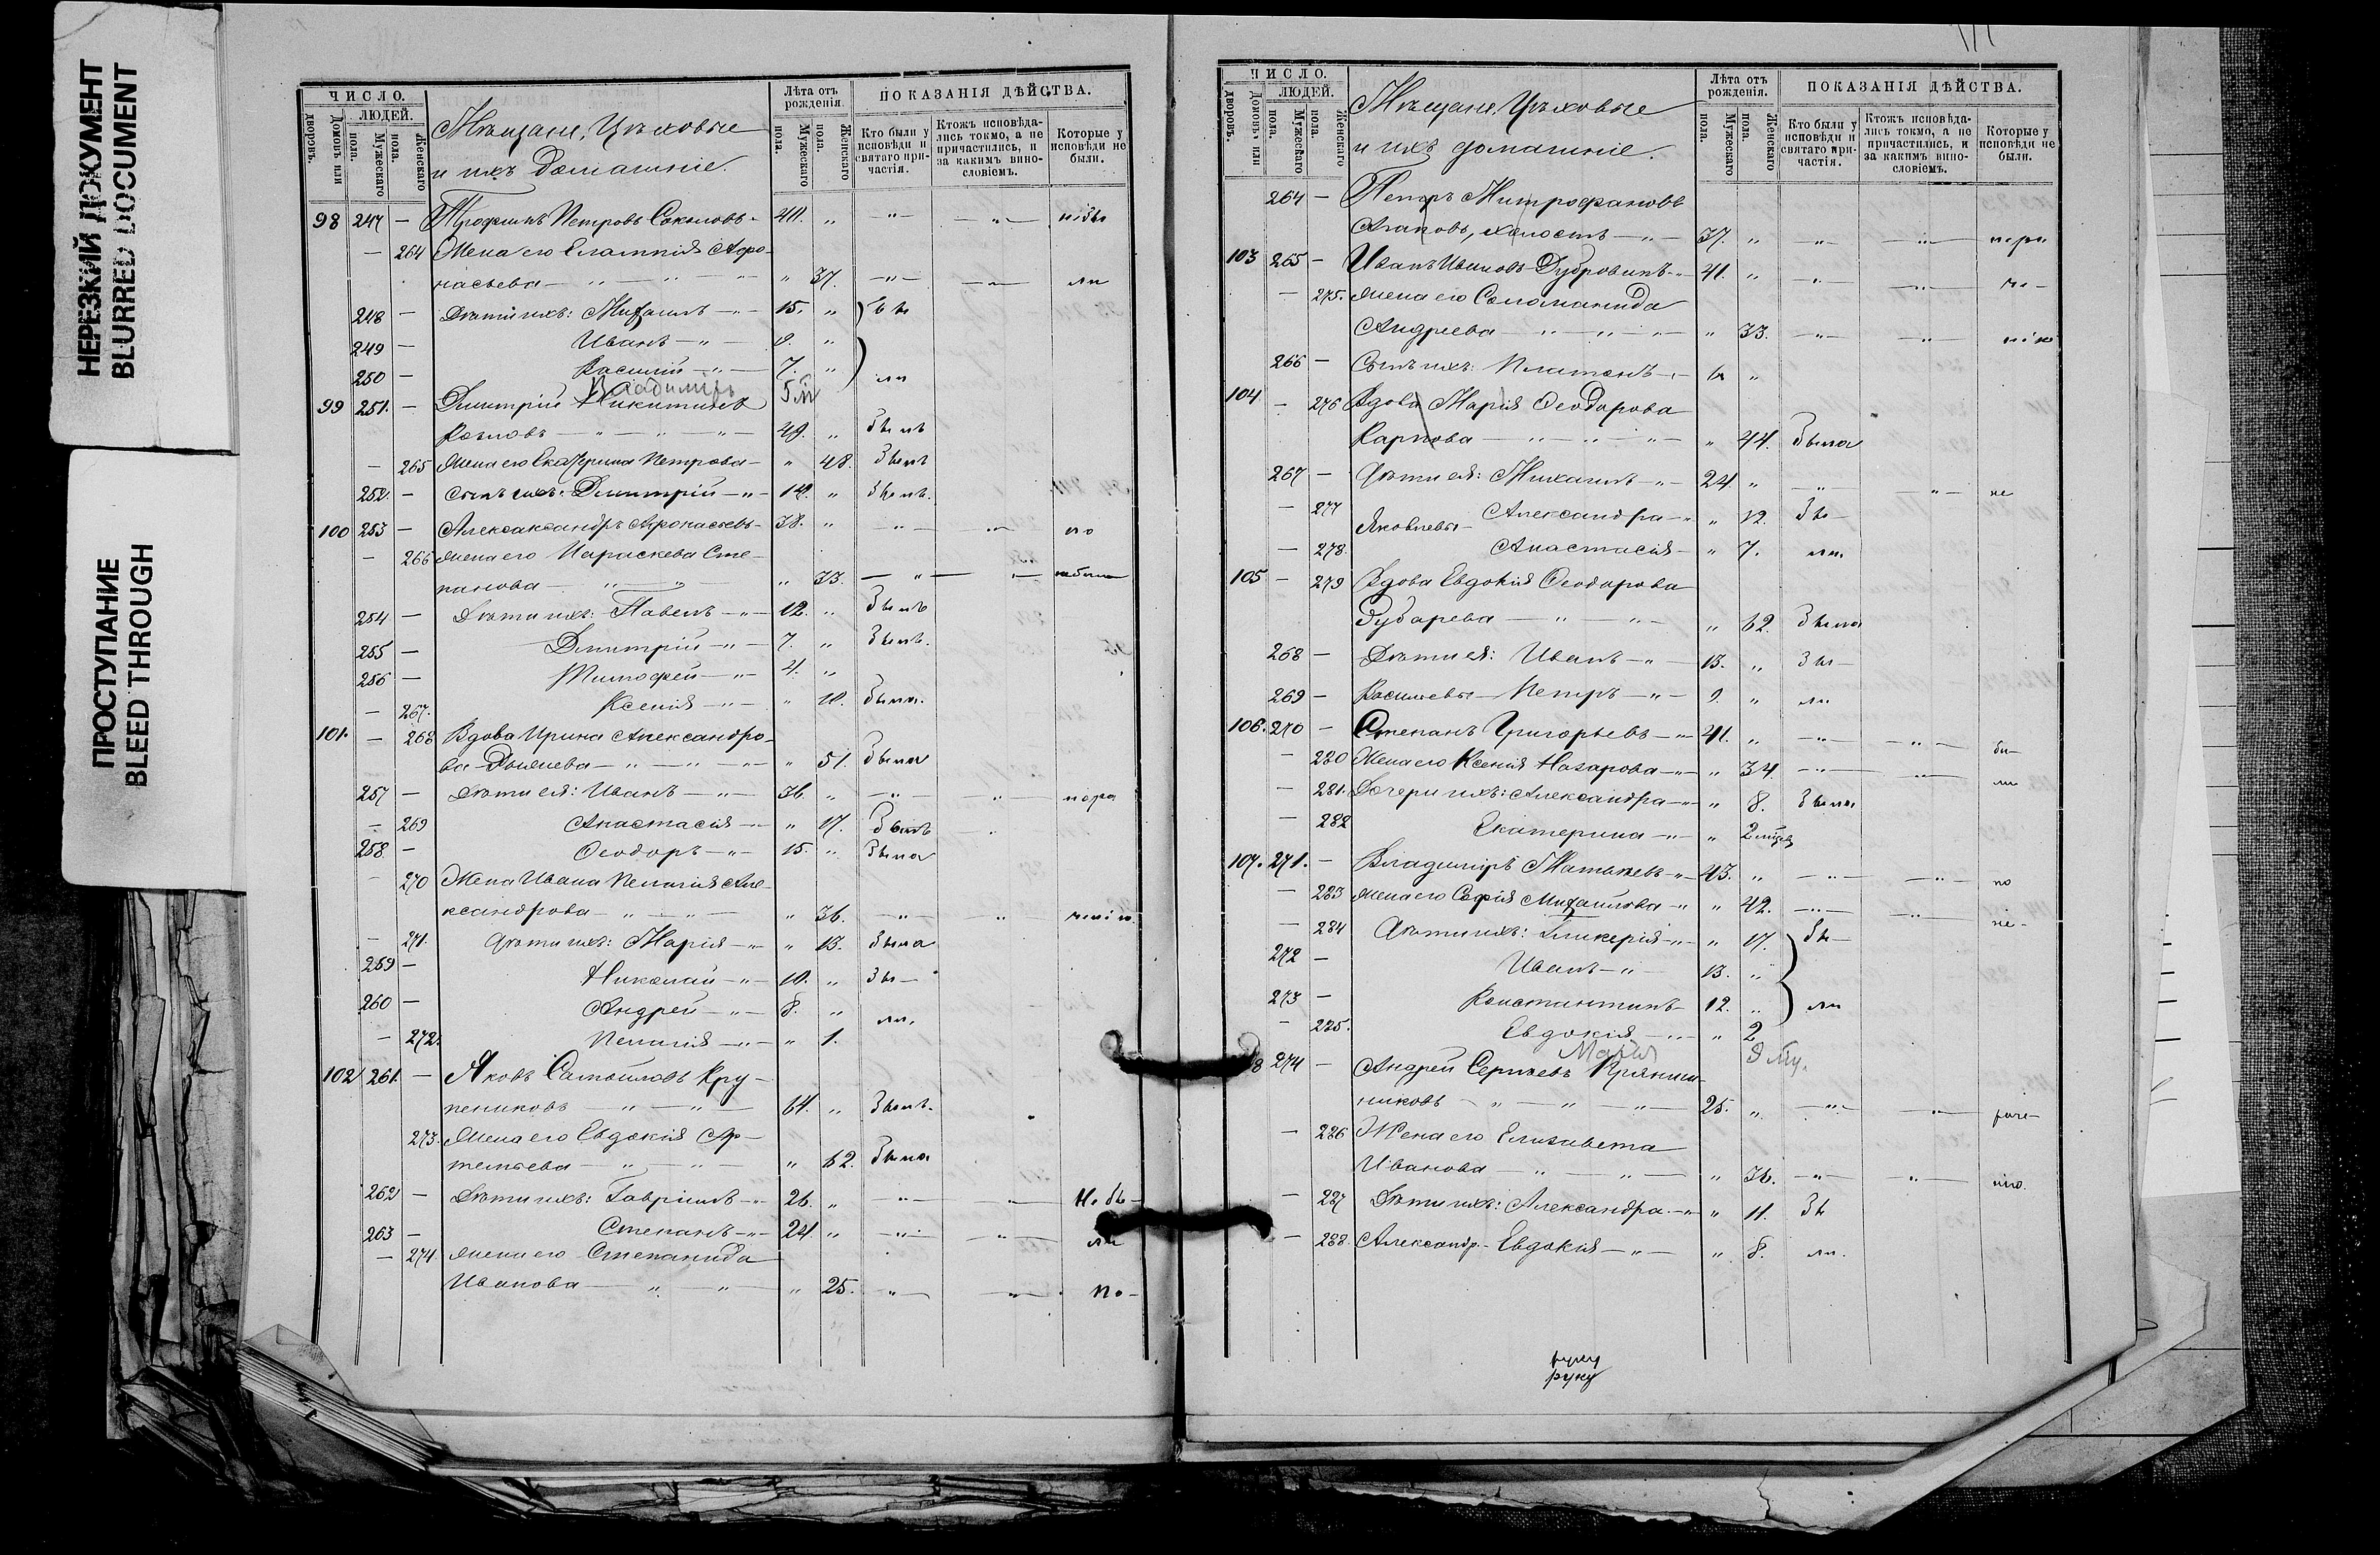 НЕРЕЗКИЙ ДОКУМЕНТ
BLURRED DOCUMENT
ПРОСТУПАНИЕ
BLEED THROUGH
ЧИСЛО.
ЛЮДЕЙ.
Домовъ или дворовъ.
Мужескаго пола.
Женскаго пола.
Мѣщане, Цѣховые
и ихъ домашніе.
Лѣта отъ рожденія.
Мужескаго пола.
Женскаго пола.
ПОКАЗАНІЯ ДѢЙСТВА.
Кто были у исповѣди и святаго причастія.
Ктожъ исповѣдались токмо, а не причастились, и за какимъ винословіемъ.
Которые у исповѣди не были.
98 247 — Трофимъ Петровъ 40. „ — „ — — „ —
— 264 Жена его Евлампія Афо-
насьева — „ — „ — „ 37. — „ — — „ —
248 — Дѣти ихъ: Михаилъ — „ — 15. „ бы
249 — Иванъ — „ — 9. „
250 — Василій — „ — 7. „ ли
Владиміръ 5 м
99 251. — Димитрій Никитинъ
Козловъ — „ — „ — „ — 49. „ былъ
— 265 Жена его Екатерина Петрова — „ 48. была
252. — Сынъ ихъ: Димитрій — „ — 14. „ былъ.
100 253 — Алексаксандръ Афонасьевъ — 38. „ — „ — — „ —
— 266 Жена его Параскева Сте-
панова — „ — „ „ 33. — „ — — „ —
254 — Дѣти ихъ: Павелъ — „ — 12. „ былъ
255 — Димитрій — „ — 7. „ былъ.
256 — Тимофей — „ — 4. „
— 267. Ксенія — „ — „ 10. была.
101. — 268 Вдова Ирина Александро-
ва — „ — „ — „ — „ 51. была
257 — Дѣти ея: Иванъ — „ — 36. „ — „ — — „ —
— 269 Анастасія — „ — „ 17. былъ
258 — Ѳеодоръ — „ — 15. „ была
— 270 Жена Ивана Пелагія Але-
ксандрова — „ — „ — „ 36. — „ — „
— 271. Дѣти ихъ: Марія — „ — „ 13. была
259 — Николай — „ — 10. „ бы —
260 — Андрей — „ — 8. „ ли.
— 272. Пелагія — „ — „ 1.
102 261. — Яковъ Самойловъ Кру-
пениковъ — „ — „ — 64. „ былъ.
273. Жена его Евдокія Ар-
темьева — „ — „ — „ 62. была
262 — Дѣти ихъ: Гавріилъ — „ — 26. „ — „ — — „ — Не бы-
263 — Степанъ — „ — 24. „ — „ — — „ — ли
— 274. Жена его Степанида
Иванова — „ — „ — „ 25. — „ — — „ —
ЧИСЛО.
ЛЮДЕЙ.
Домовъ или дворовъ.
Мужескаго пола.
Женскаго пола.
Мѣщане, Цѣховые
и ихъ домашніе.
Лѣта отъ рожденія.
Мужескаго пола.
Женскаго пола.
ПОКАЗАНІЯ ДѢЙСТВА.
Кто были у исповѣди и святаго причастія.
Ктожъ исповѣдались токмо, а не причастились, и за какимъ винословіемъ.
Которые у исповѣди не были.
264 — Петръ Митрофановъ
Агаповъ, холостъ — „ — 37. „ — „ — — „ —
103 265 — Иванъ Ивановъ Дубровинъ — „ 41. „ — „ — — „ —
— 275. Жена его Соломанида
Андреева — „ — „ — „ — „ 33. — „ — — „ —
266 — Сынъ ихъ: Платонъ — „
104 — 276 Вдова Марія Ѳеодорова
Карпова — „ — „ — „ — „ 44. была
267 — Дѣти ея: Михаилъ — „ — 24. „ — „ — — „ — не
— 277 Александра — „ „ 12. бы —
Яковлевы —
— 278. Анастасія — „ 7. ли.
105 — 279 Вдова Евдокія Ѳеодорова
Зубарева — „ — „ — „ 62. была
268 — Дѣти ея: Иванъ — „ — 13. „ бы —
269 — Васильевы — Петръ — „ — 9. „ ли
106. 270 — Степанъ Григорьевъ — „ — 41. „ — „ — — „ — бы—
— 280 Жена его Ксенія Назарова — „ — „ 34. — „ — — „ — ли
— 281. Дочери ихъ: Александра — „ — „ 8. была
— 282 Екатерина — „ — „ 2
107. 271. — Владиміръ Матвѣевъ — „ — 43. „ — „ — — „ — по
— 283 Жена его Софія Михаилова — „ „ 42. — „ — — „ — не-
— 284 Дѣти ихъ: Гликерія — „ — „ 17. бы —
272 — Иванъ — „ — 13. „
273 — Константинъ — 12. „ ли
— 285. Евдокія — „ — „ 2
Марія
8 274 — Андрей Сергѣевъ Пряниш-
никовъ — „ — „ — „ — 25. „ — „ — — „ —
— 286 Жена его Елизавета
Иванова — „ — „ — „ 36. — „ — — „ —
— 287 Дѣти ихъ: Александра — „ „ 11. бы
— 288. Александр. — Евдокія — „ — „ 8. ли.
руку